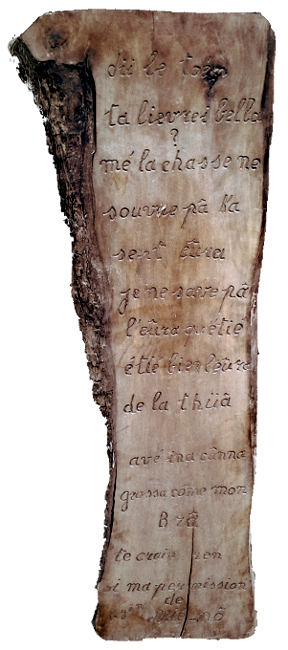 dii le topa
ta lievrei bella
?
mé la chasse ne
souvre pâ k'a
sent eûra
je ne save pâ
l'eûra qu'étié
étié bien l'eûra
de la thüâ
avé ina cânna
grossa come mon
Brâ
te crain ren
si ma permission
de